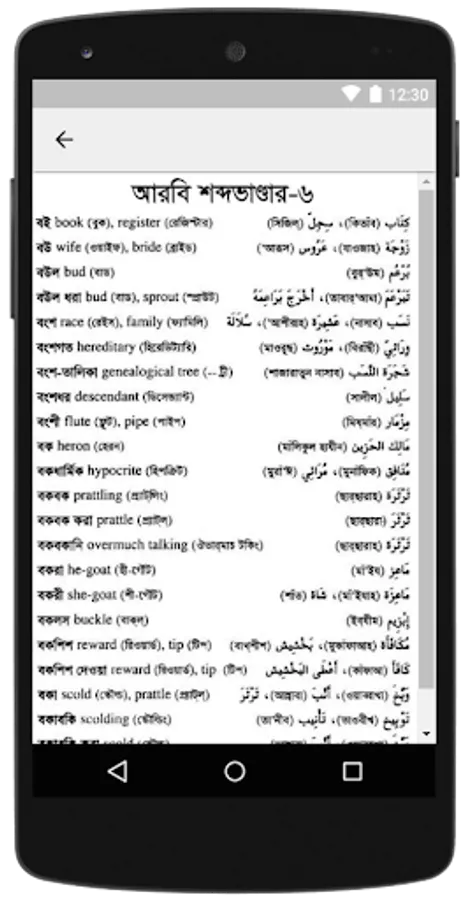 12:30
আরবি শব্দভাণ্ডার-৬
বই book (বুক), register (রেজিস্টার) (সিজিল) سِجِلّ ،(কিতাব) كِتَاب
বউ wife (ওয়াইফ), bride (ব্রাইড) (‘আরূস) عَرُوس ،(যাওজাহ) زَوْجَة
বউল bud (বাড) (বুর্‘উম) بُرْعُم
বউল ধরা bud (বাড), sprout (স্প্রাউট) أَخْرَجَ بَرَاعِمَهُ ،(তাবার্‘আমা) تَبَرْعَمَ
বংশ race (রেইস), family (ফ্যামিলি) سُلَالَة ،(‘আশীরাহ) عَشِيرَة ،(নাসাব) نَسَب
বংশগত hereditary (হিরেডিট্যারি) (মাওরূছ) مَوْرُوث ،(বিরাছী) وِرَاثِيّ
বংশ-তালিকা genealogical tree (--ট্রী) (শাজারাতুন নাসাব) شَجَرَة النَّسَب
বংশধর descendant (ডিসেন্ড্যান্ট) (সালীল) سَلِيل
বংশী flute (ফ্লুট), pipe (পাইপ) (মিয্মার) مِزْمَار
বক heron (হেরন) (মালিকুল হাযীন) مَالِك الحَزِين
বকধার্মিক hypocrite (হিপক্রিট) (মুরাঈ) مُرَائِي ،(মুনাফিক) مُنَافِق
বকবক prattling (প্র্যাট্লিং) (ছার্ছারাহ) ثَرْثَرَة
বকবক করা prattle (প্র্যাট্ল) (ছার্ছারা) ثَرْثَرَ
বকবকানি overmuch talking (ঔভার্মাচ টকিং) (ছার্ছারাহ) ثَرْثَرَة
বকরা he-goat (হী-গৌট) (মা‘ইয) مَاعِز
বকরী she-goat (শী-গৌট) (শাত) شَاة ،(মা‘ইযাহ) مَاعِزَة
বকলস buckle (বাক্ল) (ইবযীম) إِبْزِيم
বকশিশ reward (রিওয়ার্ড), tip (টিপ) (বাখ্শীশ) بَخْشِيش ،(মুকাফাআহ) مُكَافَأَة
বকশিশ দেওয়া reward (রিওয়ার্ড), tip (টিপ) أَعْطَى البَخْشِيش ،(কাফাআ) كَافَأَ
বকা scold (স্কৌল্ড), prattle (প্র্যাট্ল) ثَرْثَرَ ،(আন্নাবা) أَنَّبَ ،(ওয়াব্বাখা) وَبَّخَ
বকাবকি scolding (স্কৌল্ডিং) (তা’নীব) تَأْنِيب ،(তাওবীখ) تَوْبِيخ
বকাবকি করা scold